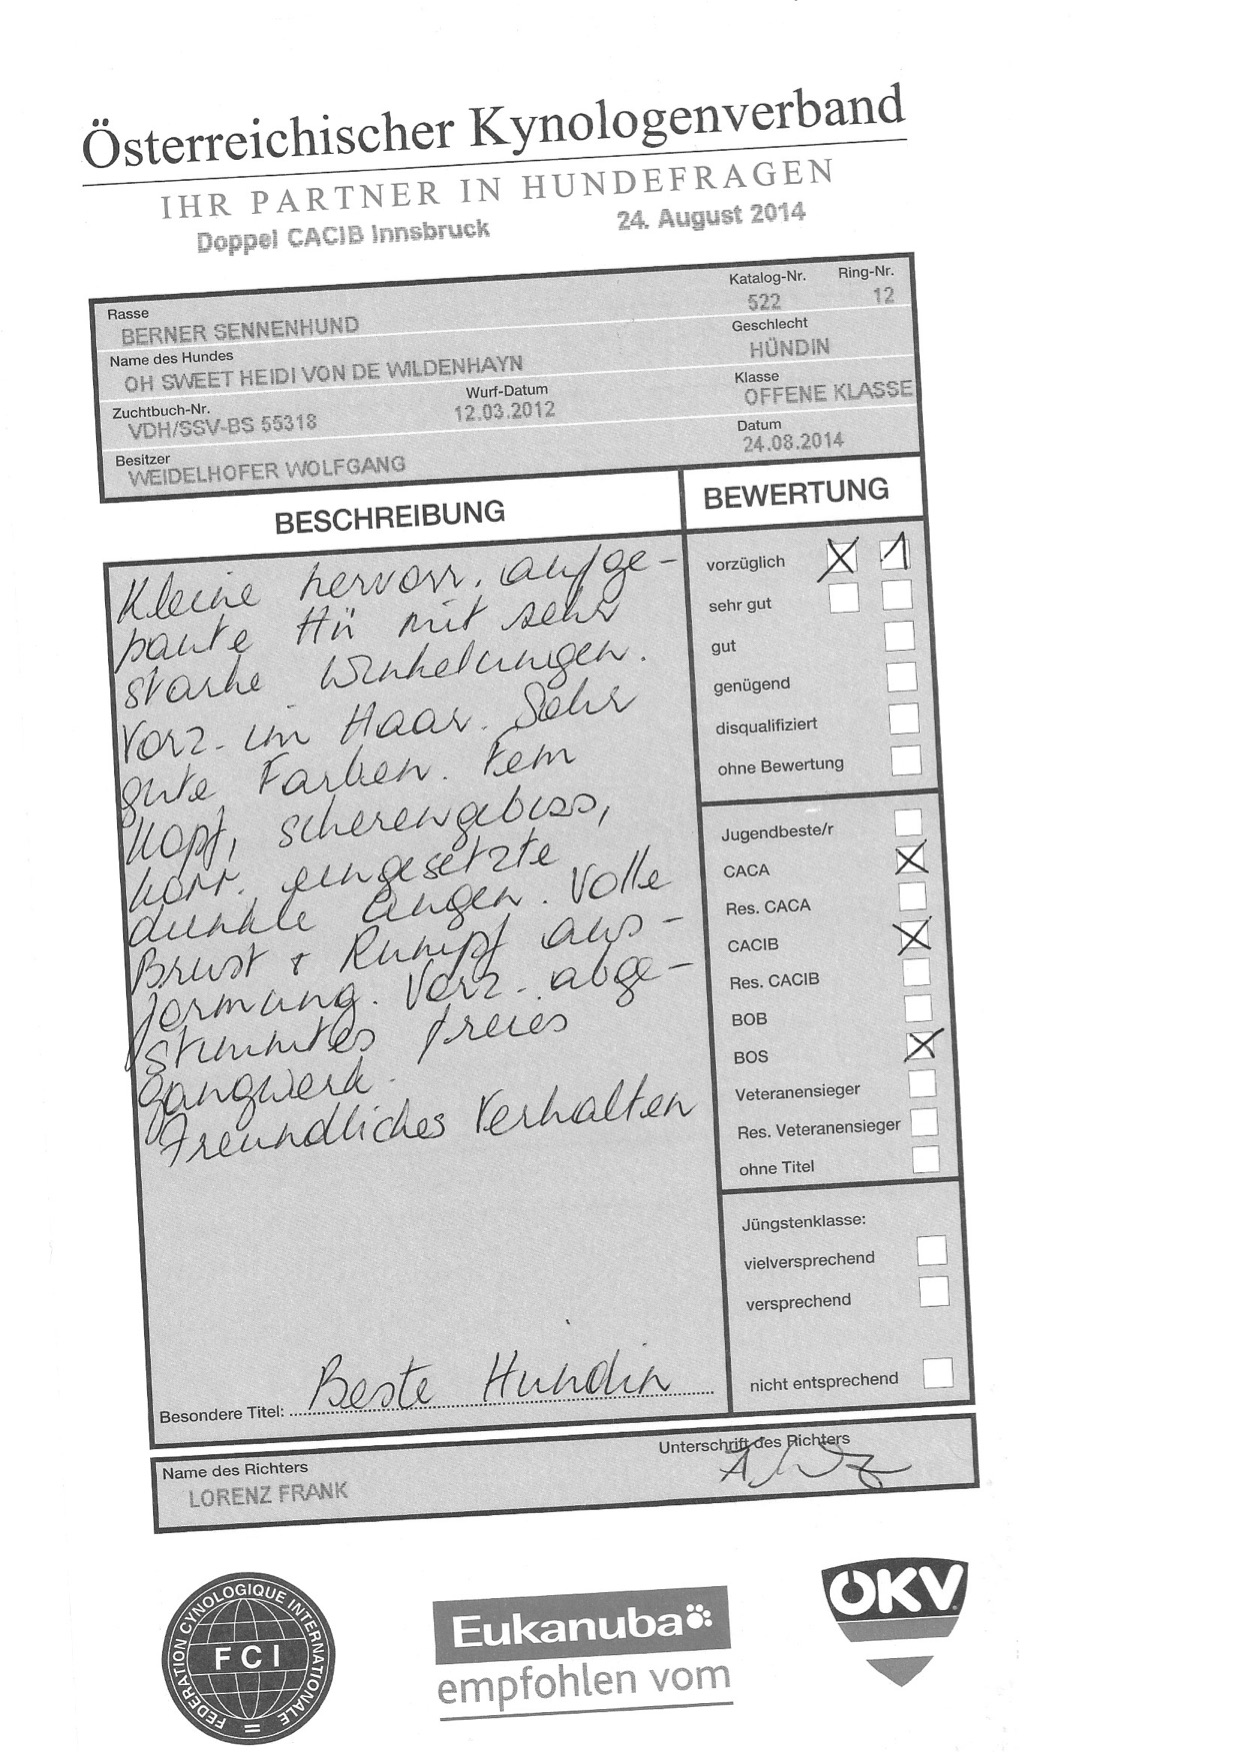 Österreichischer Kynologenverband
IHR PARTNER IN HUNDEFRAGEN
Doppel CACIB Innsbruck 24. August 2014
Rasse Katalog-Nr. Ring-Nr.
BERNER SENNENHUND 522 12
Name des Hundes Geschlecht
OH SWEET HEIDI VON DE WILDENHAYN HÜNDIN
Zuchtbuch-Nr. Wurf-Datum Klasse
VDH/SSV-BS 55318 12.03.2012 OFFENE KLASSE
Besitzer Datum
WEIDELHOFER WOLFGANG 24.08.2014
BESCHREIBUNG
Kleine hervorr. aufge-
baute Hü mit sehr
starke Winkelungen.
Vorz. im Haar. Sehr
gute Farben. Fem
Kopf, scherengebiss,
korr. eingesetzte
dunkle Augen. Volle
Brust + Rumpf aus-
formung. Vorz. abge-
stimmtes freies
gangwerk.
Freundliches Verhalten
Besondere Titel: Beste Hundin
BEWERTUNG
vorzüglich X 1
sehr gut
gut
genügend
disqualifiziert
ohne Bewertung
Jugendbeste/r
CACA X
Res. CACA
CACIB X
Res. CACIB
BOB
BOS X
Veteranensieger
Res. Veteranensieger
ohne Titel
Jüngstenklasse:
vielversprechend
versprechend
nicht entsprechend
Name des Richters Unterschrift des Richters
LORENZ FRANK
FEDERATION CYNOLOGIQUE INTERNATIONALE
FCI
Eukanuba
empfohlen vom
ÖKV